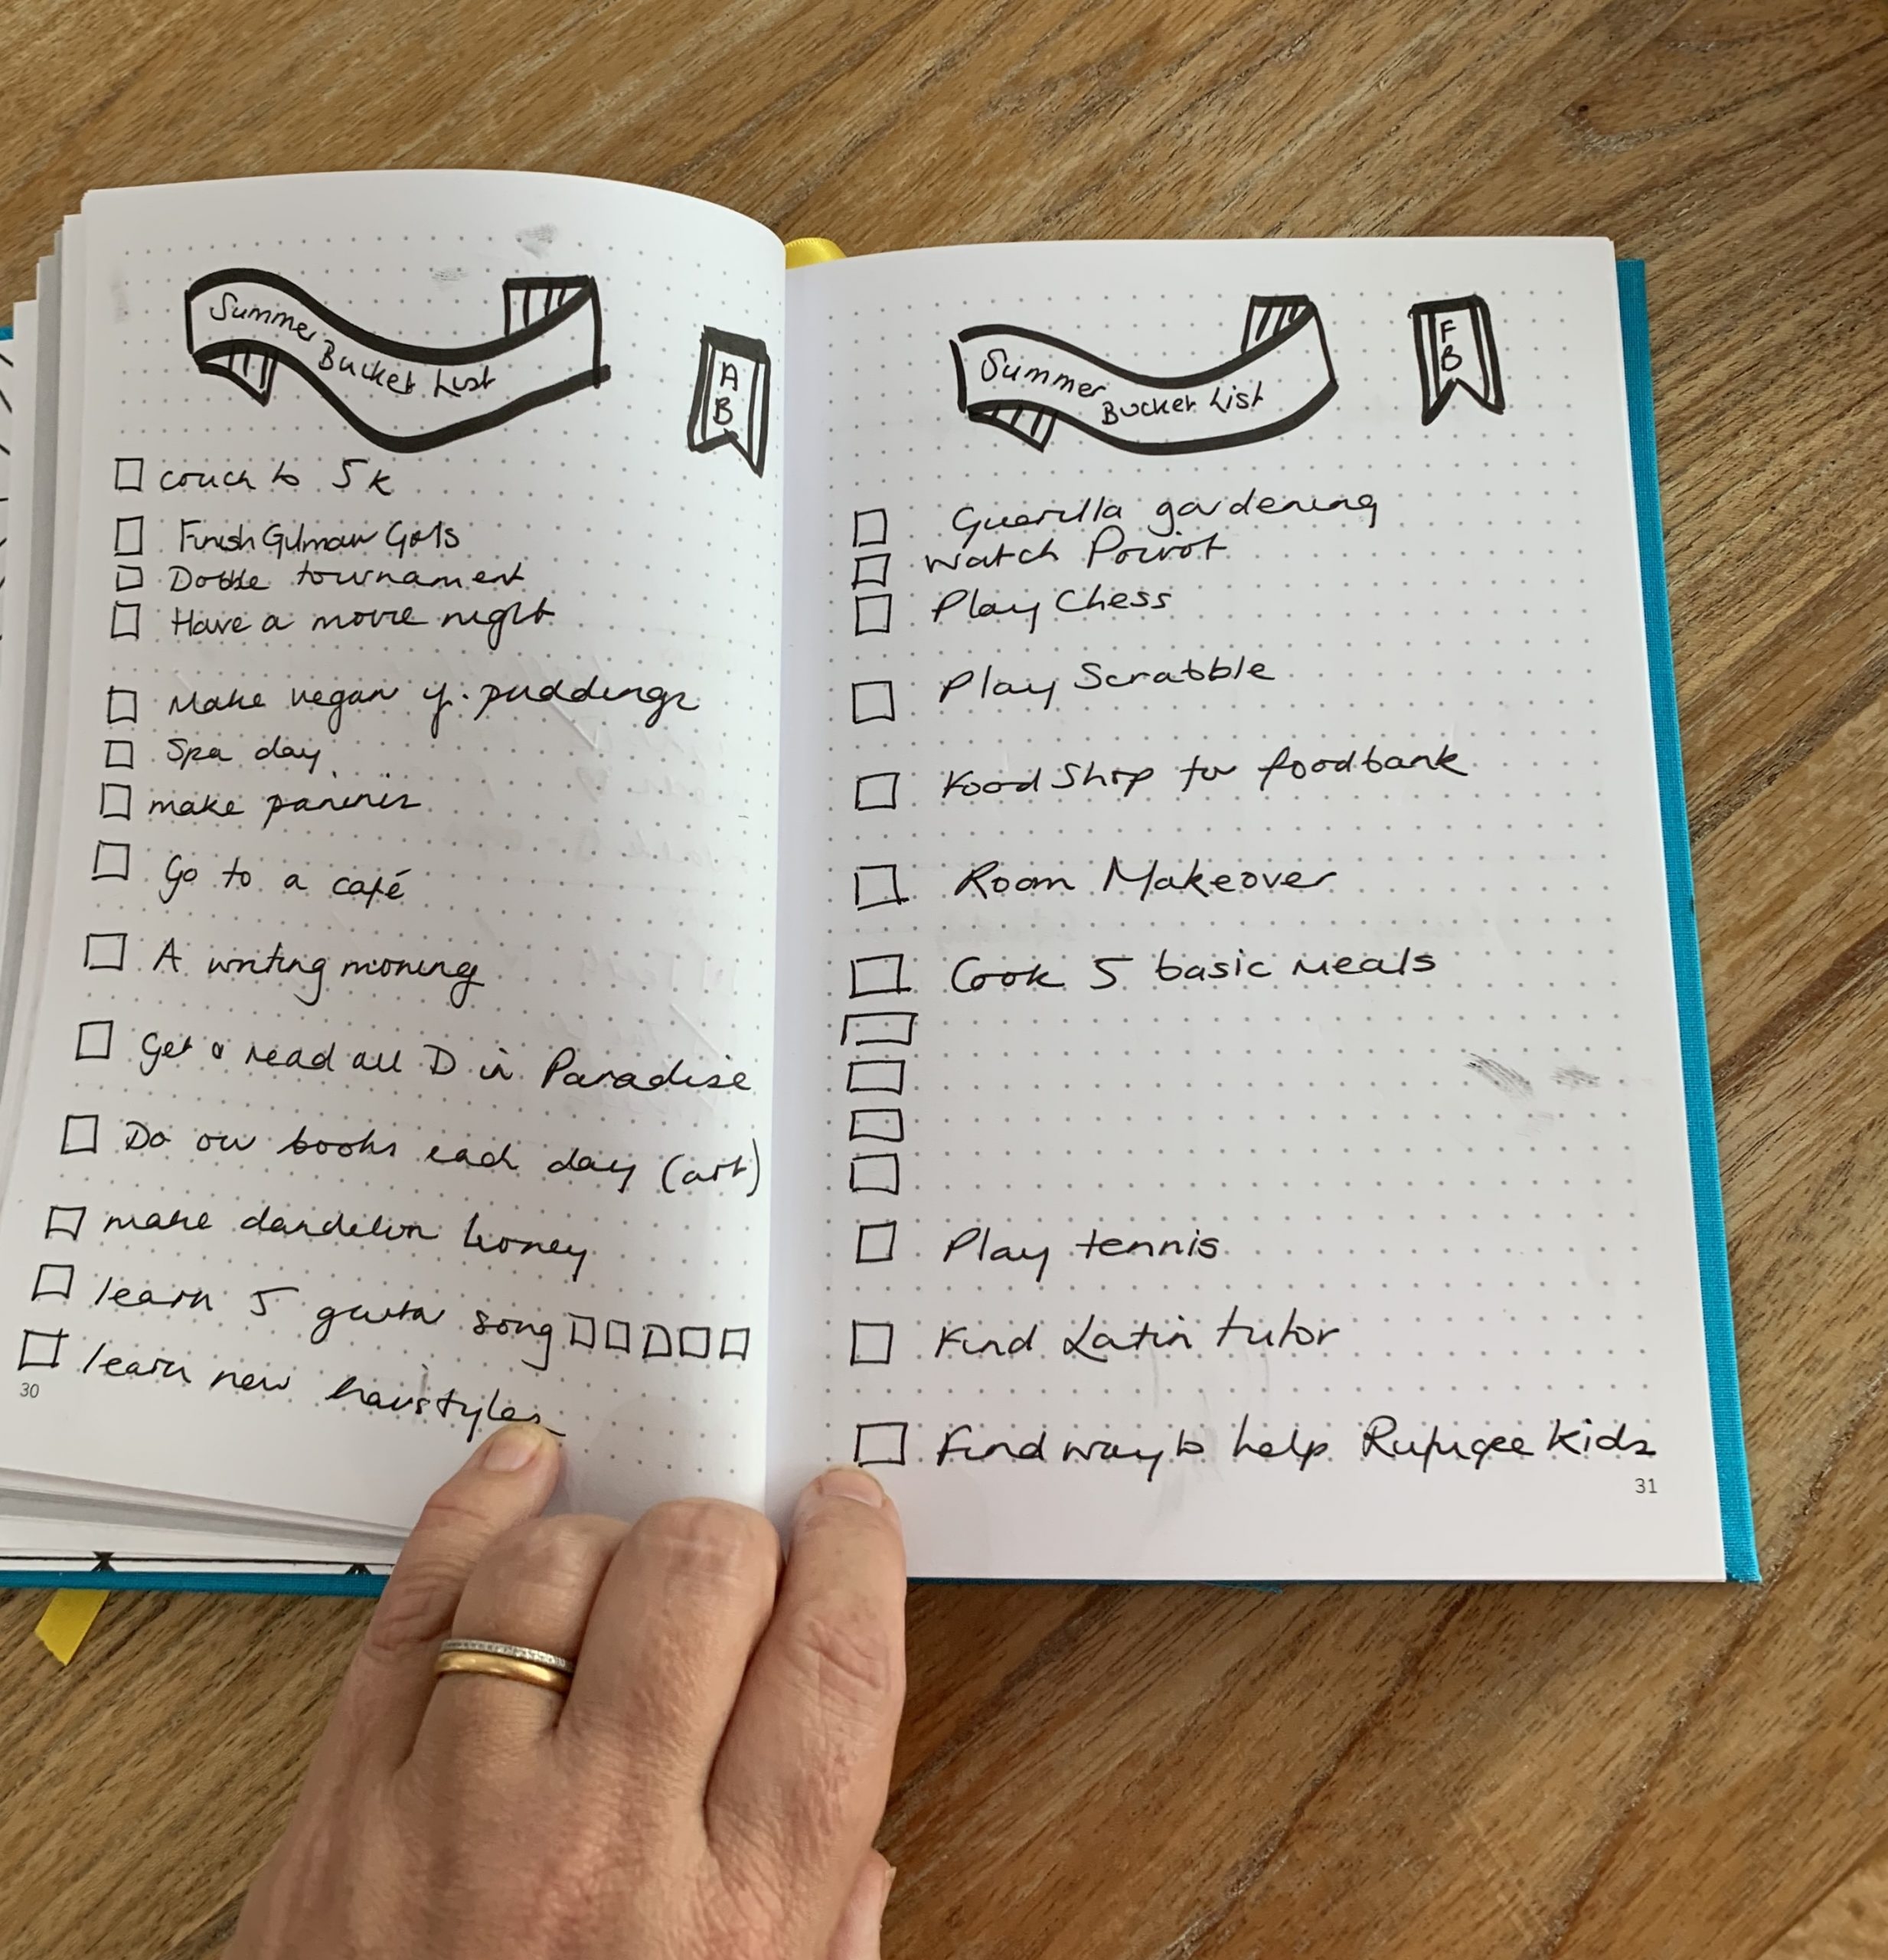 Summer
Bucket List
A
B
couch to 5k
Finish Gilmour Girls
Dobble tournament
Have a movie night
Make vegan y. puddings
Spa day
make paninis
Go to a café
A writing morning
Get & read all D in Paradise
Do our books each day (art)
make dandelion honey
learn 5 guitar song
learn new hairstyles
30
Summer
Bucket List
F
B
Guerilla gardening
Watch Poirot
Play Chess
Play Scrabble
Food Shop for foodbank
Room Makeover
Cook 5 basic meals
Play tennis
Find Latin tutor
Find way to help Refugee kids
31